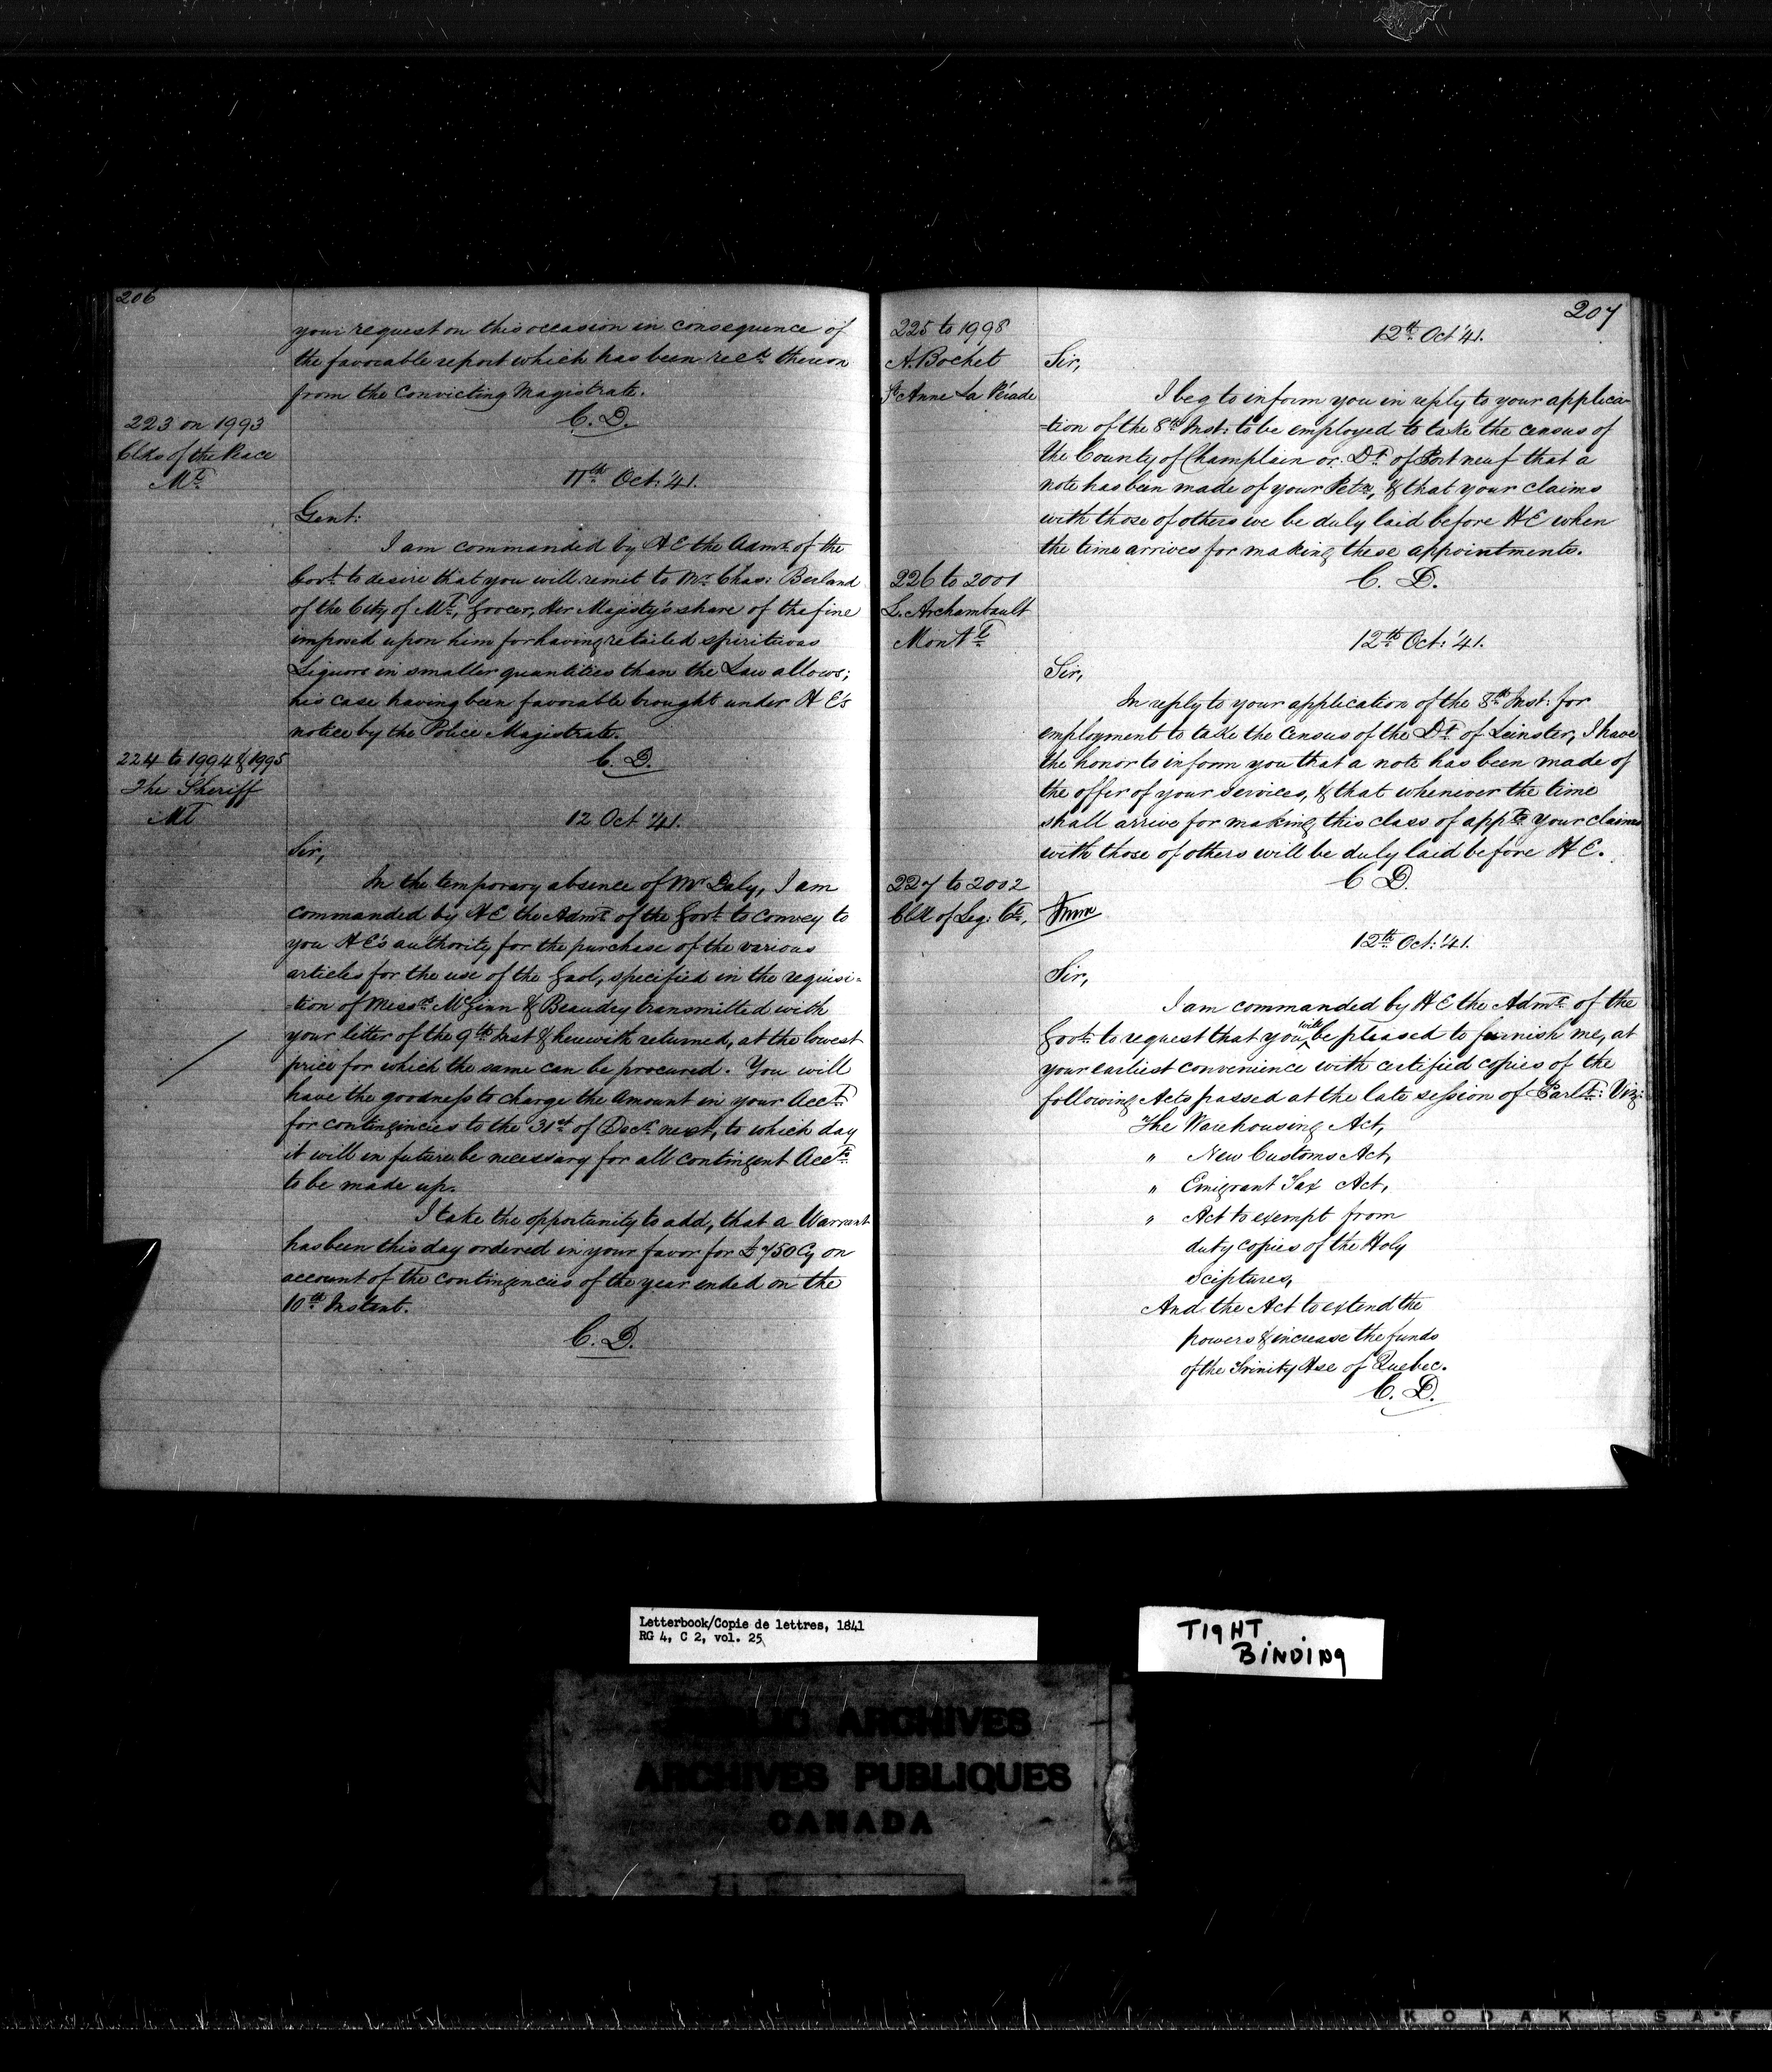 206
your request on this occasion in consequence of
the favorable report which has been recd. thereon
from the Convicting Magistrate.
C. D.
223 on 1993
Clks of the Peace
Ml
11th Oct: '41.
Gent:
I am commanded by H E the Admr. of the
Govt. to desire that you will remit to Mr. Chas: Berland
of the City of Ml, Grocer, Her Majesty's share of the fine
imposed upon him for having retailed spirituous
Liquors in smaller quantities than the Law allows;
his case having been favorable brought under H E's
notice by the Police Magistrate.
C. D.
224 to 1994 & 1995
The Sheriff
Ml
12 Oct '41.
Sir,
In the temporary absence of Mr Daly, I am
commanded by H E the Admr. of the Govt. to convey to
you H E's authority for the purchase of the various
articles for the use of the Gaol, specified in the requisi-
-tion of Messrs. McGinn & Beaudry transmitted with
your letter of the 9th Inst & herewith returned, at the lowest
price for which the same can be procured. You will
have the goodness to charge the Amount in your Acct.
for contingencies to the 31st of Decr. next, to which day
it will in future be necessary for all contingent Accts.
to be made up.
I take the opportunity to add, that a Warrant
has been this day ordered in your favor for £750 Cy on
account of the contingencies of the year ended on the
10th Instant.
C. D.
207
225 to 1998
A. Bochet
St Anne La Pérade
12th Oct '41.
Sir,
I beg to inform you in reply to your applica-
-tion of the 8th Inst: to be employed to take the census of
the County of Champlain or Dt. of Portneuf that a
note has been made of your Petn., & that your claims
with those of others we be duly laid before H E when
the time arrives for making these appointments.
C. D.
226 to 2001
L. Archambault
Montl
12th Oct: '41.
Sir,
In reply to your application of the 8th Inst: for
employment to take the Census of the Dt. of Leinster, I have
the honor to inform you that a note has been made of
the offer of your services, & that whenever the time
shall arrive for making this class of appts. your claims
with those of others will be duly laid before H E.
C D.
227 to 2002
Clk of Leg: Cl,
12th Oct: '41.
Sir,
I am commanded by H E the Admr. of the
Govt. to request that you will be pleased to furnish me, at
your earliest convenience with certified copies of the
following Acts passed at the late session of Parlt.: Viz:
The Warehousing Act,
" New Customs Act,
" Emigrant Tax Act,
" Act to exempt from
duty copies of the Holy
Sciptures,
And the Act to extend the
powers & increase the funds
of the Trinity Hse of Quebec.
C. D.
Letterbook/Copie de lettres, 1841
RG 4, C 2, vol. 25
TIGHT
BINDING
PUBLIC ARCHIVES
ARCHIVES PUBLIQUES
CANADA
KODAK SAF